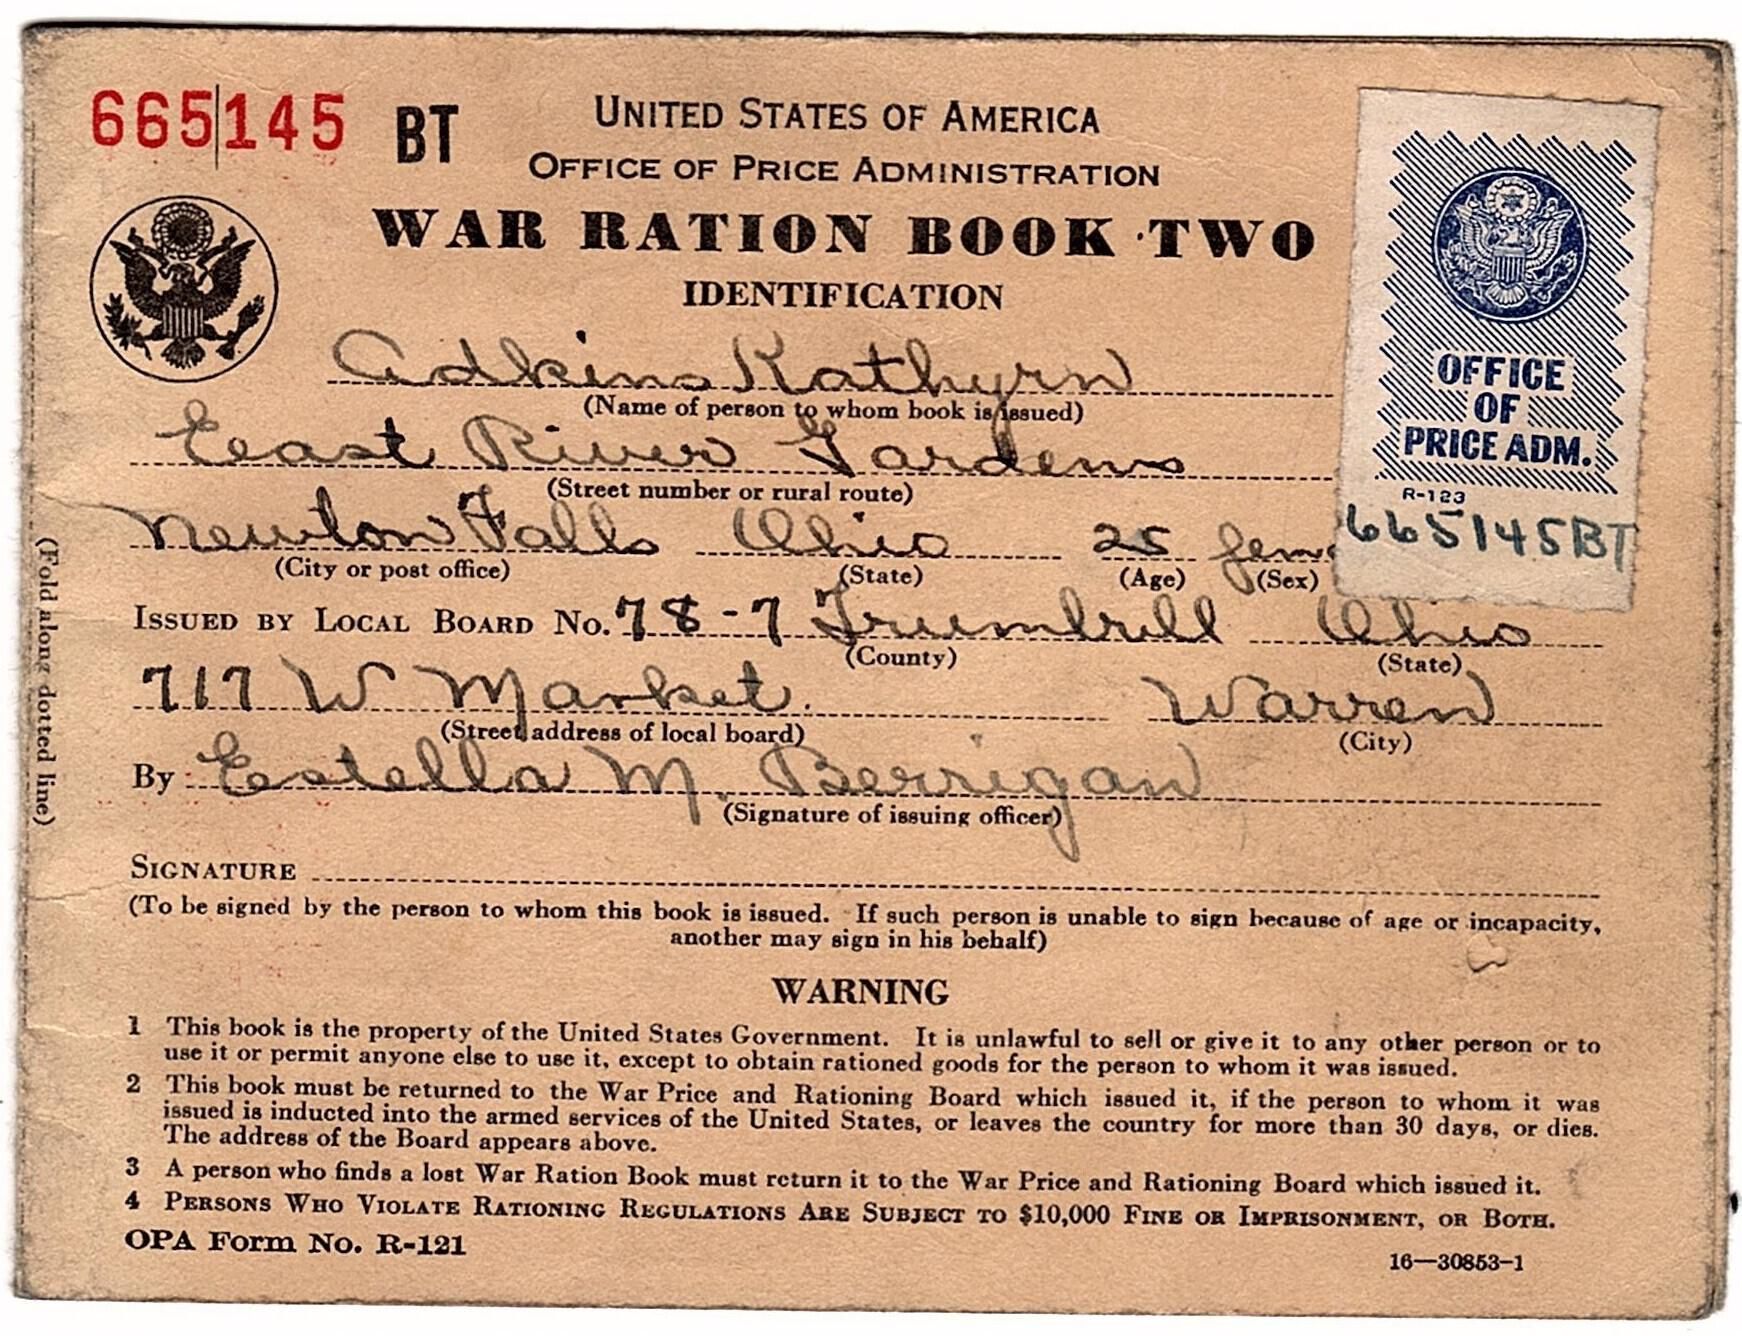 665145 BT
UNITED STATES OF AMERICA
OFFICE OF PRICE ADMINISTRATION
WAR RATION BOOK TWO
IDENTIFICATION
Adkins Kathyrn
(Name of person to whom book is issued)
East River Gardens
(Street number or rural route)
Newton Falls Ohio 25 fem
(City or post office) (State) (Age) (Sex)
OFFICE
OF
PRICE ADM.
R-123
665145BT
ISSUED BY LOCAL BOARD No. 78-7 Trumbull Ohio
(County) (State)
717 W Market. Warren
(Street address of local board) (City)
By Estella M. Berrigan
(Signature of issuing officer)
SIGNATURE
(To be signed by the person to whom this book is issued. If such person is unable to sign because of age or incapacity,
another may sign in his behalf)
WARNING
1 This book is the property of the United States Government. It is unlawful to sell or give it to any other person or to
use it or permit anyone else to use it, except to obtain rationed goods for the person to whom it was issued.
2 This book must be returned to the War Price and Rationing Board which issued it, if the person to whom it was
issued is inducted into the armed services of the United States, or leaves the country for more than 30 days, or dies.
The address of the Board appears above.
3 A person who finds a lost War Ration Book must return it to the War Price and Rationing Board which issued it.
4 PERSONS WHO VIOLATE RATIONING REGULATIONS ARE SUBJECT TO $10,000 FINE OR IMPRISONMENT, OR BOTH.
OPA Form No. R-121
16—30853-1
(Fold along dotted line)